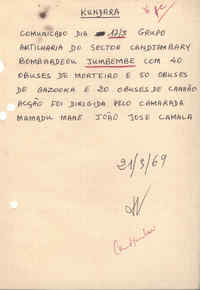 KUNDARA
COMUNICADO DIA 17/3 GRUPO
ARTILHARIA DO SECTOR CANDJAMBARY
BOMBARDEOU JUMBEMBE COM 40
OBUSES DE MORTEIRO E 50 OBUSES
DE BAZOOKA E 20 OBUSES DE CANHÃO
ACÇÃO FOI DIRIGIDA PELO CAMARADA
MAMADU MANE JOÃO JOSE CAMALA
21/3/69